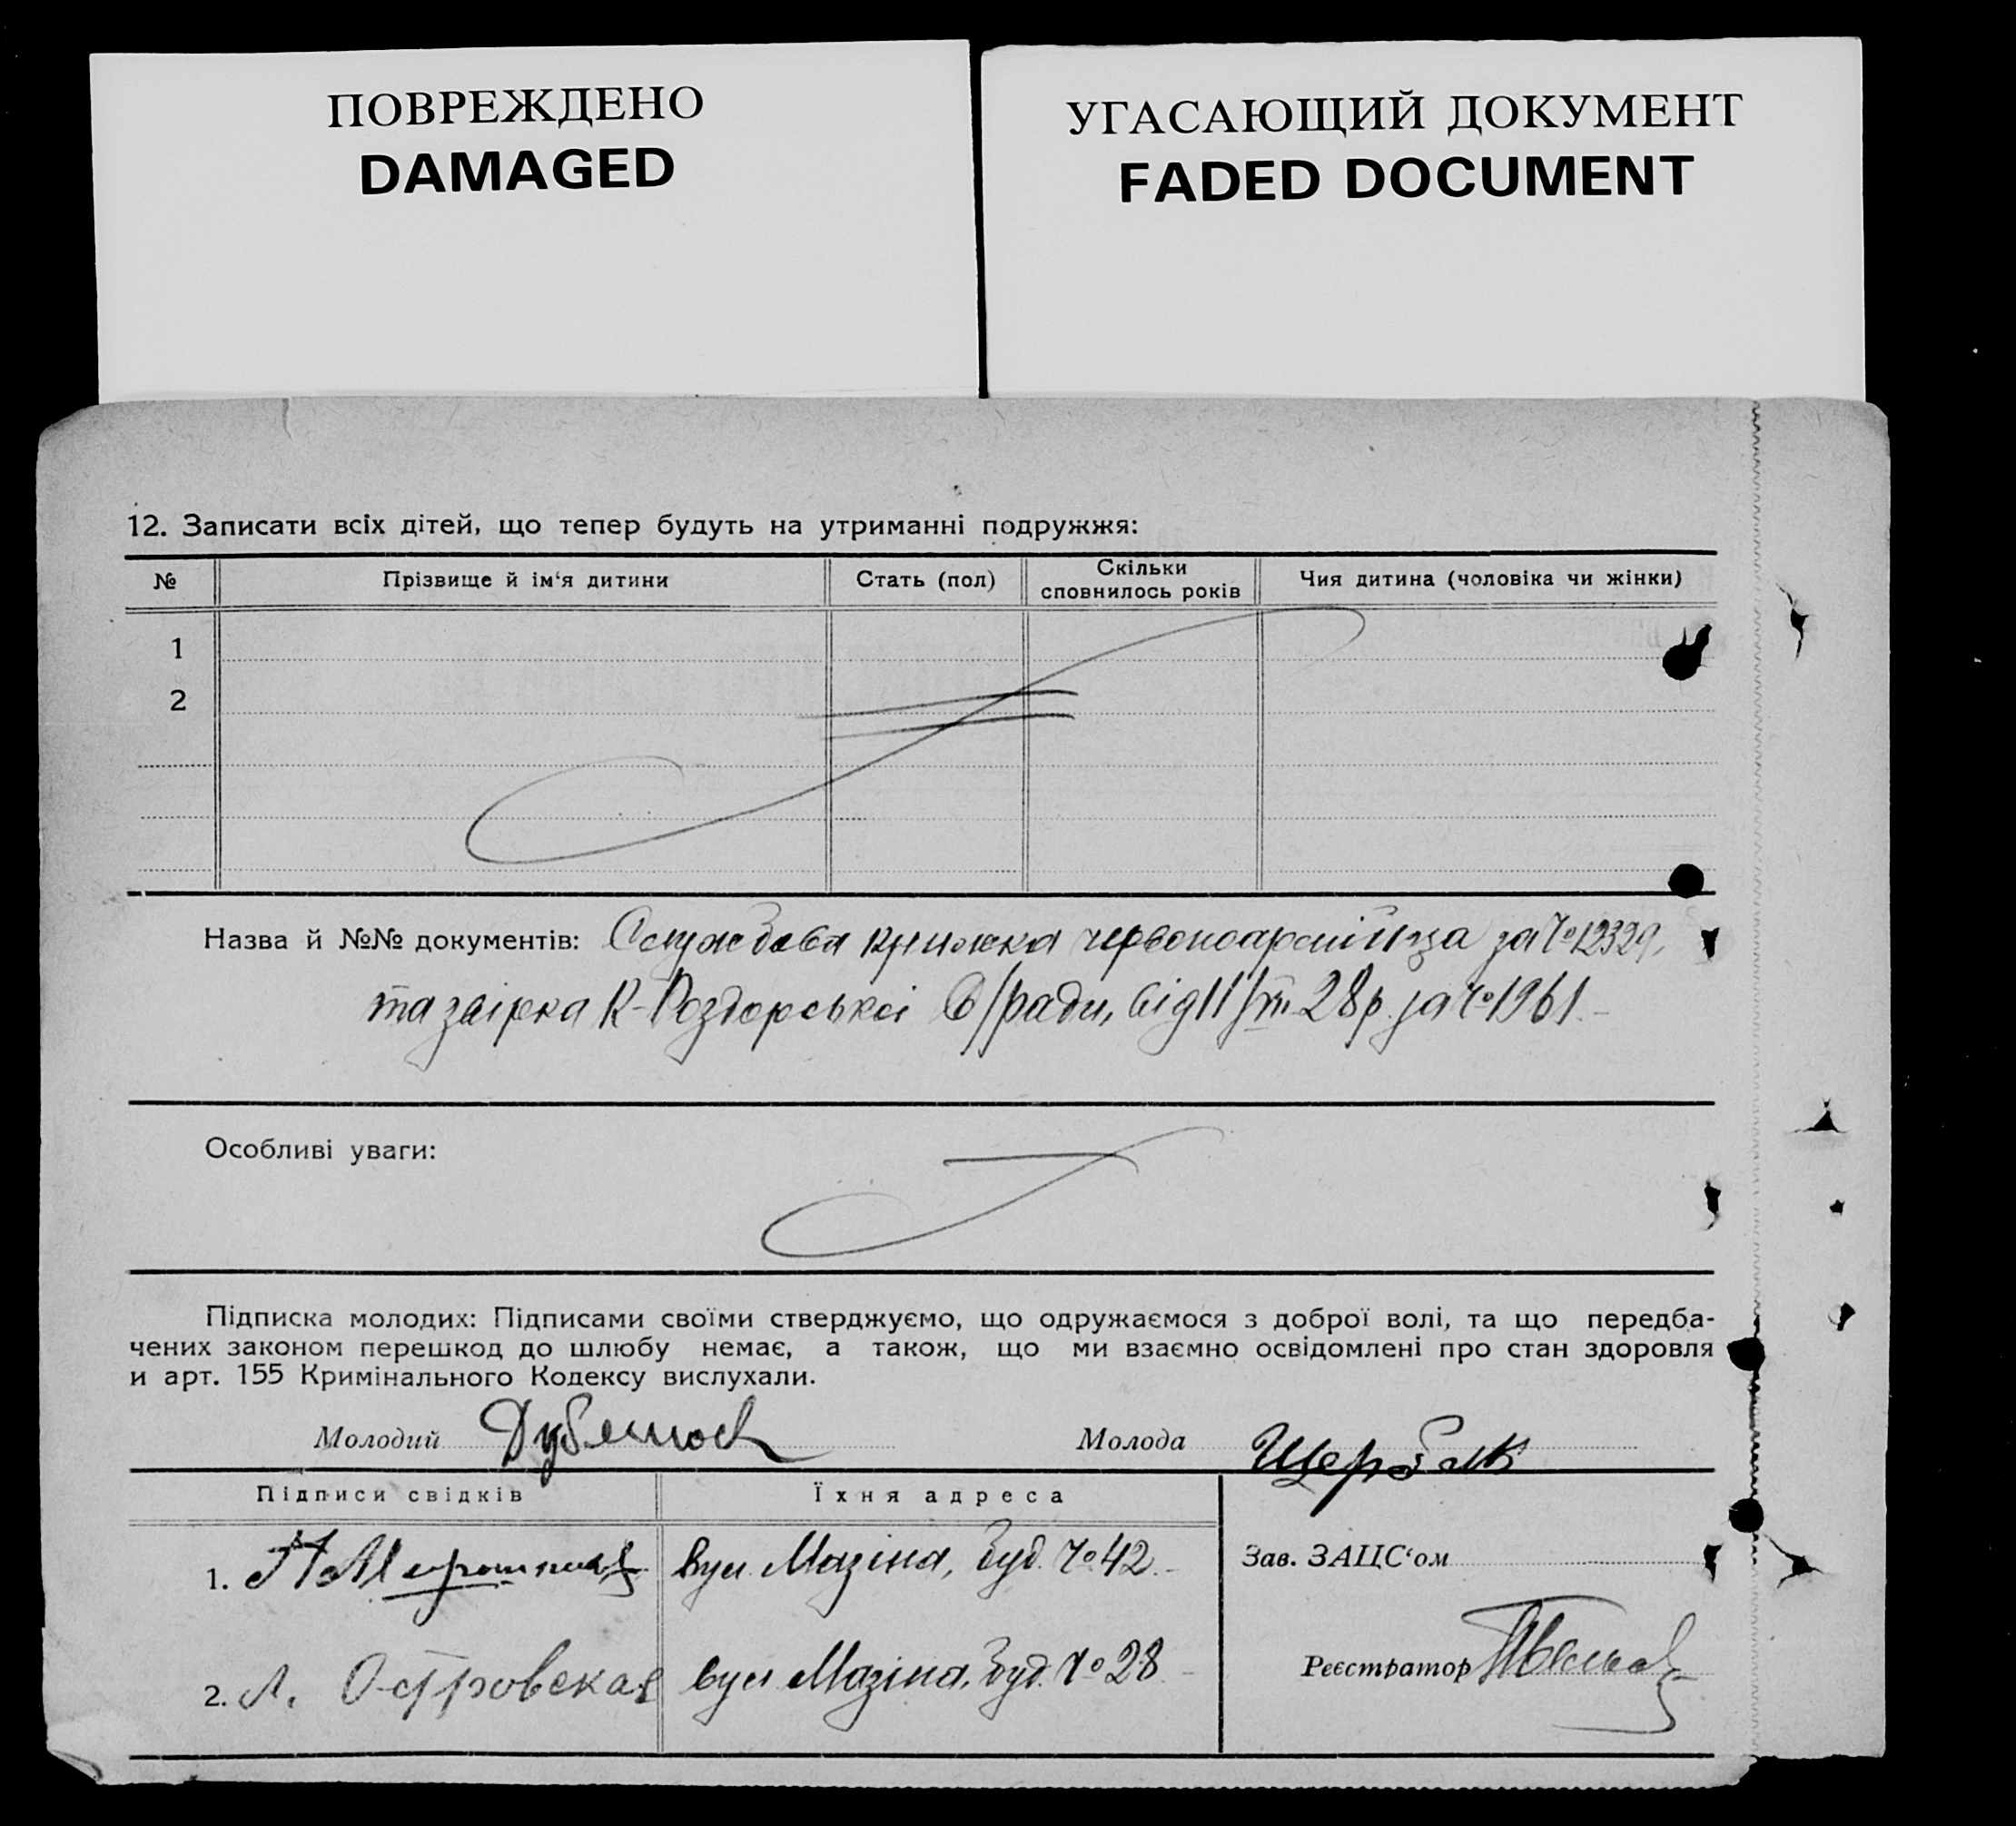 ПОВРЕЖДЕНО
DAMAGED
УГАСАЮЩИЙ ДОКУМЕНТ
FADED DOCUMENT
12. Записати всіх дітей, що тепер будуть на утриманні подружжя:
№ Прізвище й ім‘я дитини Стать (пол) Скільки сповнилось років Чия дитина (чоловіка чи жінки)
1
2
Назва й №№ документів: книжка червоноармійця за № 12329,
та К-Роздорської С/ради, від 11/ 28 р. за № 1961.
Особливі уваги:
Підписка молодих: Підписами своїми стверджуємо, що одружаємося з доброї волі, та що передба-
чених законом перешкод до шлюбу немає, а також, що ми взаємно освідомлені про стан здоровля
и арт. 155 Кримінального Кодексу вислухали.
Молодий Молода Щербак
Підписи свідків Їхня адреса
1. вул. Мазіна, буд. № 42.- Зав. ЗАЦС‘ом
Реєстратор
2. Л. Островская вул Мазіна, буд. № 28 -